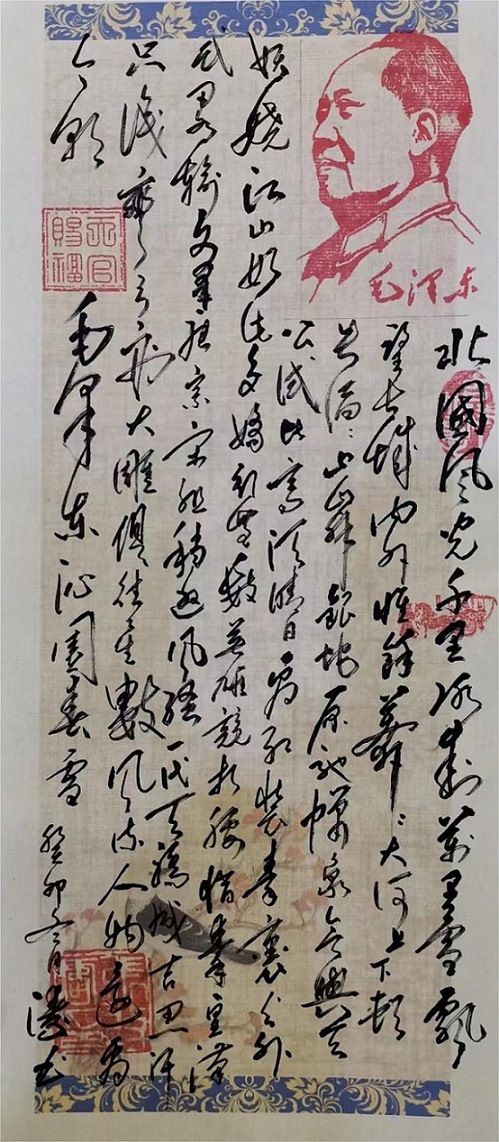 毛泽东
北國风光千里冰封萬里雪飘
望长城内外惟餘莽莽大河上下顿
失滔滔山舞银蛇原驰蜡象欲與天
公试比高须晴日看红装素裹分外
妖娆江山如此多娇引无数英雄竞折腰惜秦皇汉
武略输文采唐宗宋祖稍逊风骚一代天骄成吉思汗
只识弯弓射大雕俱往矣數风流人物还看
今朝
天官賜福
毛泽东沁园春雪
癸卯冬月
书